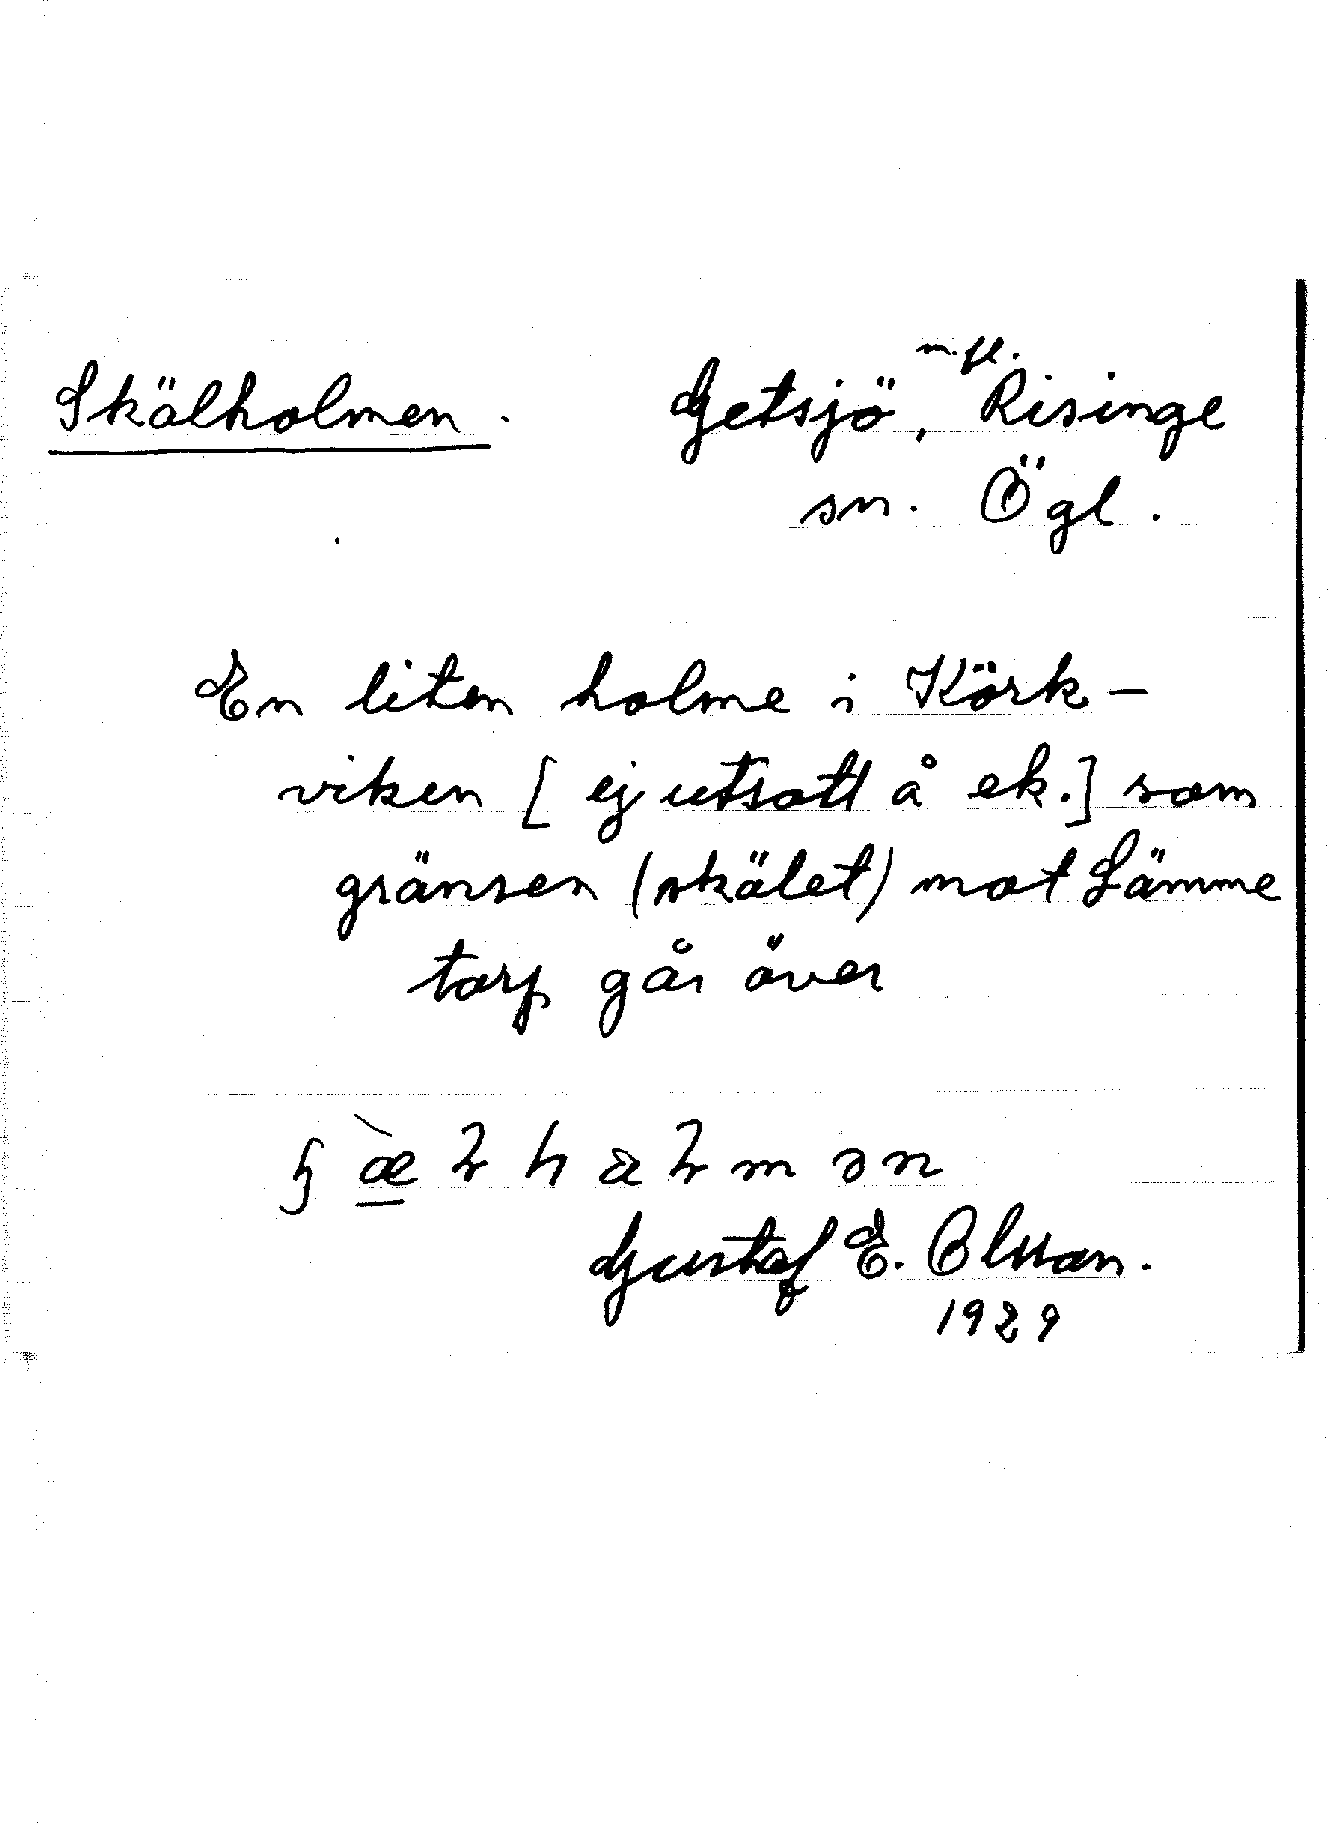 Skälholmen. Getsjö, m.fl. Risinge
sn. Ögl.
En liten holme i Körk-
viken [ej utsatt å ek.] som
gränsen (skälet) mot Lämme
torp går över
Gustaf E. Olsson.
1929